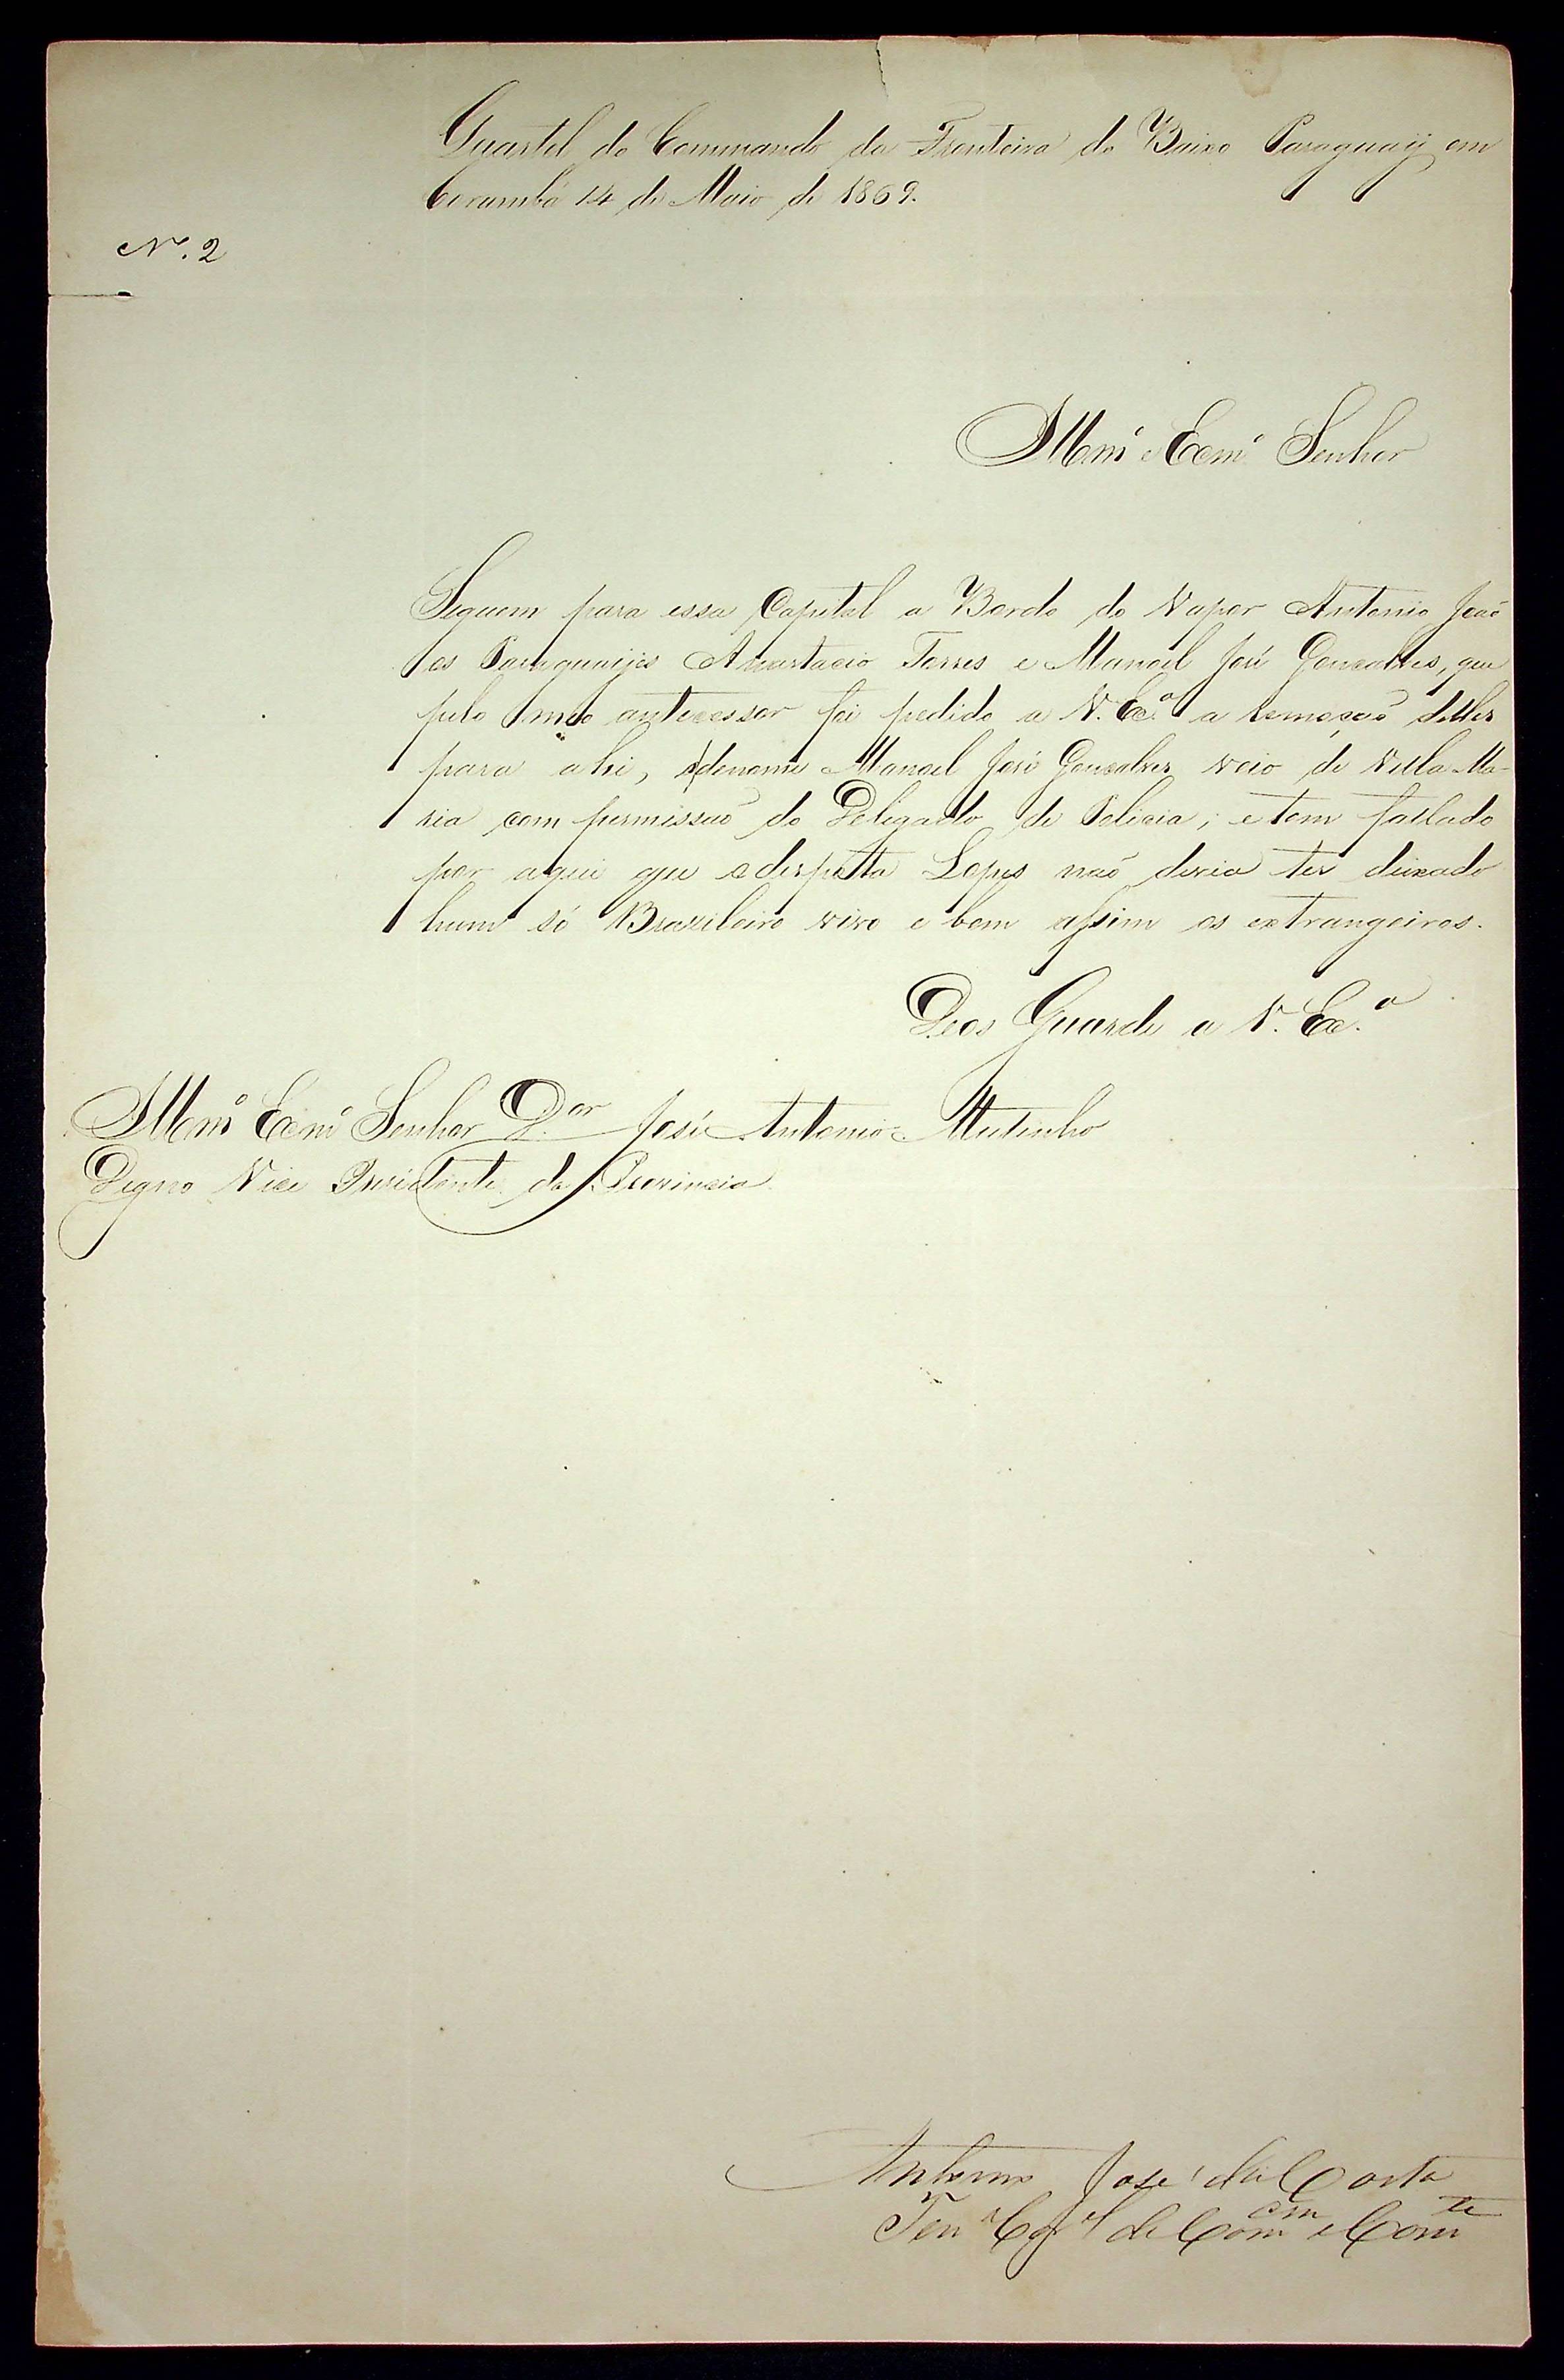 Quartel do Commando da Fronteira do Baixo Paraguaÿ em
Corumbá 14 de Maio de 1869.
Nº. 2
Illmº e Exmº Senhor
Seguem para essa Capital a Bordo do Vapor Antonio João
os Paraguaÿos Anastacio Torres e Manoel José Gonsalves, que
pelo meo antecessor foi pedido a V. Exª. a remoção delles
para ahi, o de nome Manoel José Gonsalves veio de Villa Ma-
ria com permissão do Deligado de Policia; e tem fallado
por aqui que o despota Lopes não devia ter deixado
hum só Brazileiro vivo e bem assim os extrangeiros.
Deos Guarde a V. Exª.
Illmº Exmº Senhor D.or José Antonio Mutinho
Digno Vice Presidente da Provincia.
Antonio José da Costa
Ten.e Cel de Com.am e Com.te